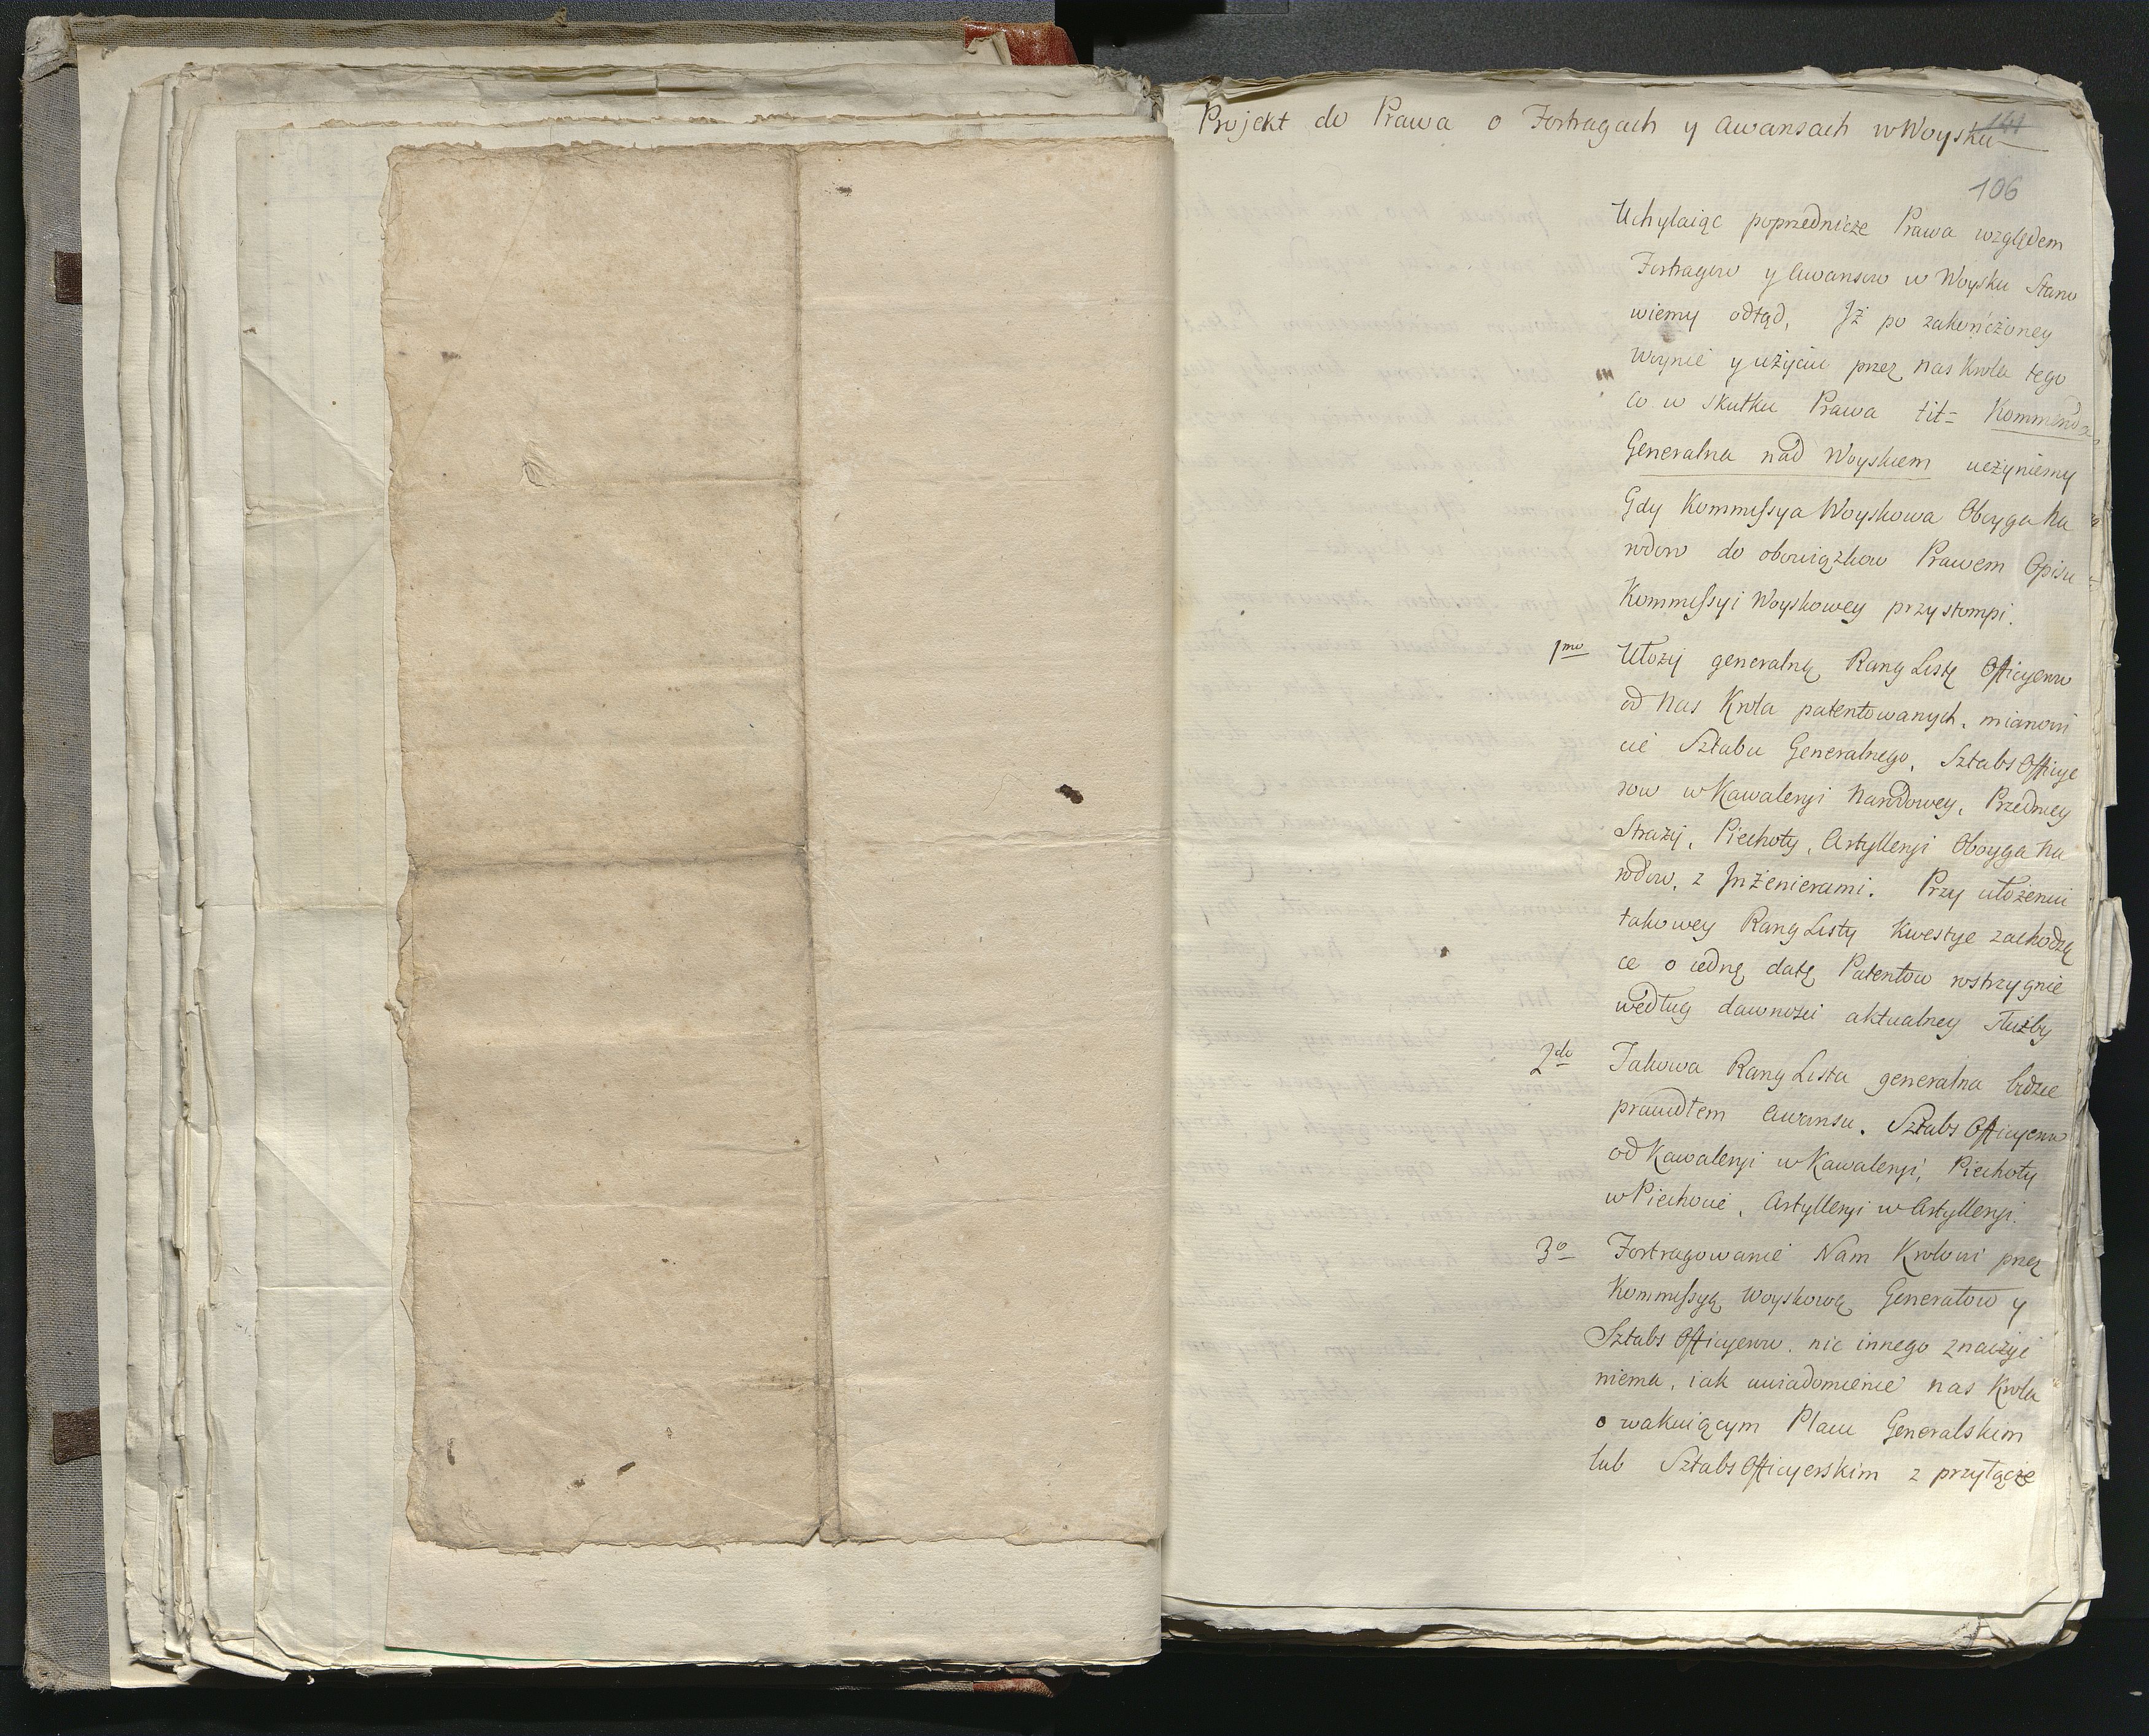 Projekt do Prawa o Fortragach y Awansach w Woysku
141
106
Uchylaiąc poprzednicze Prawa względem
Fortragow y Awansow w Woysku Stano
wiemy odtąd, Jż po zakończoney
Woynie y użyciu przez nas Krola tego
co w skutku Prawa tit= Kommenda
Generalna nad Woyskiem uczyniemy
Gdy Kommissya Woyskowa Oboyga Na
rodow do obowiązkow Prawem Opisu
Kommissyi Woyskowey przystompi.
1mo Ułoży generalną Rang Listę Officyerow
od Nas Krola patentowanych, mianowi
cie Sztabu Generalnego, Sztabs Officye
row w Kawaleryi Narodowey, Przedniey
Straży, Piechoty, Artylleryi Oboyga Na
rodow, z Jnżenierami. Przy ułożeniu
takowey Rang Listy Kwestye zachodzą
ce o iedną datę Patentow rostrzygnie
według dawności aktualney służby
2do Takowa Rang Lista generalna będzie
prawidłem Awansu. Sztabs Officyerow
od Kawaleryi w Kawaleryi, Piechoty
w Piechocie, Artylleryi w Artylleryi.
3o Fortragowanie Nam Krolowi przez
Kommissyą Woyskową Generałow y
Sztabs Officyerow, nic innego znaczyć
niema, iak uwiadomienie nas Krola
o wakuiącym Placu Generalskim
lub Sztabs Officyerskim z przyłącze